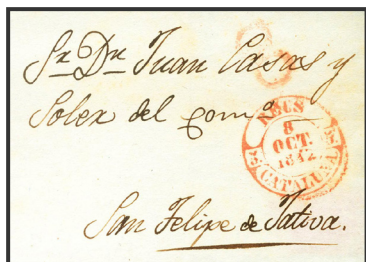 Sr Dn Juan Casas y
Soler del
REUS
8
OCT.
1842
CATALUÑA
San Felipe de Jativa.